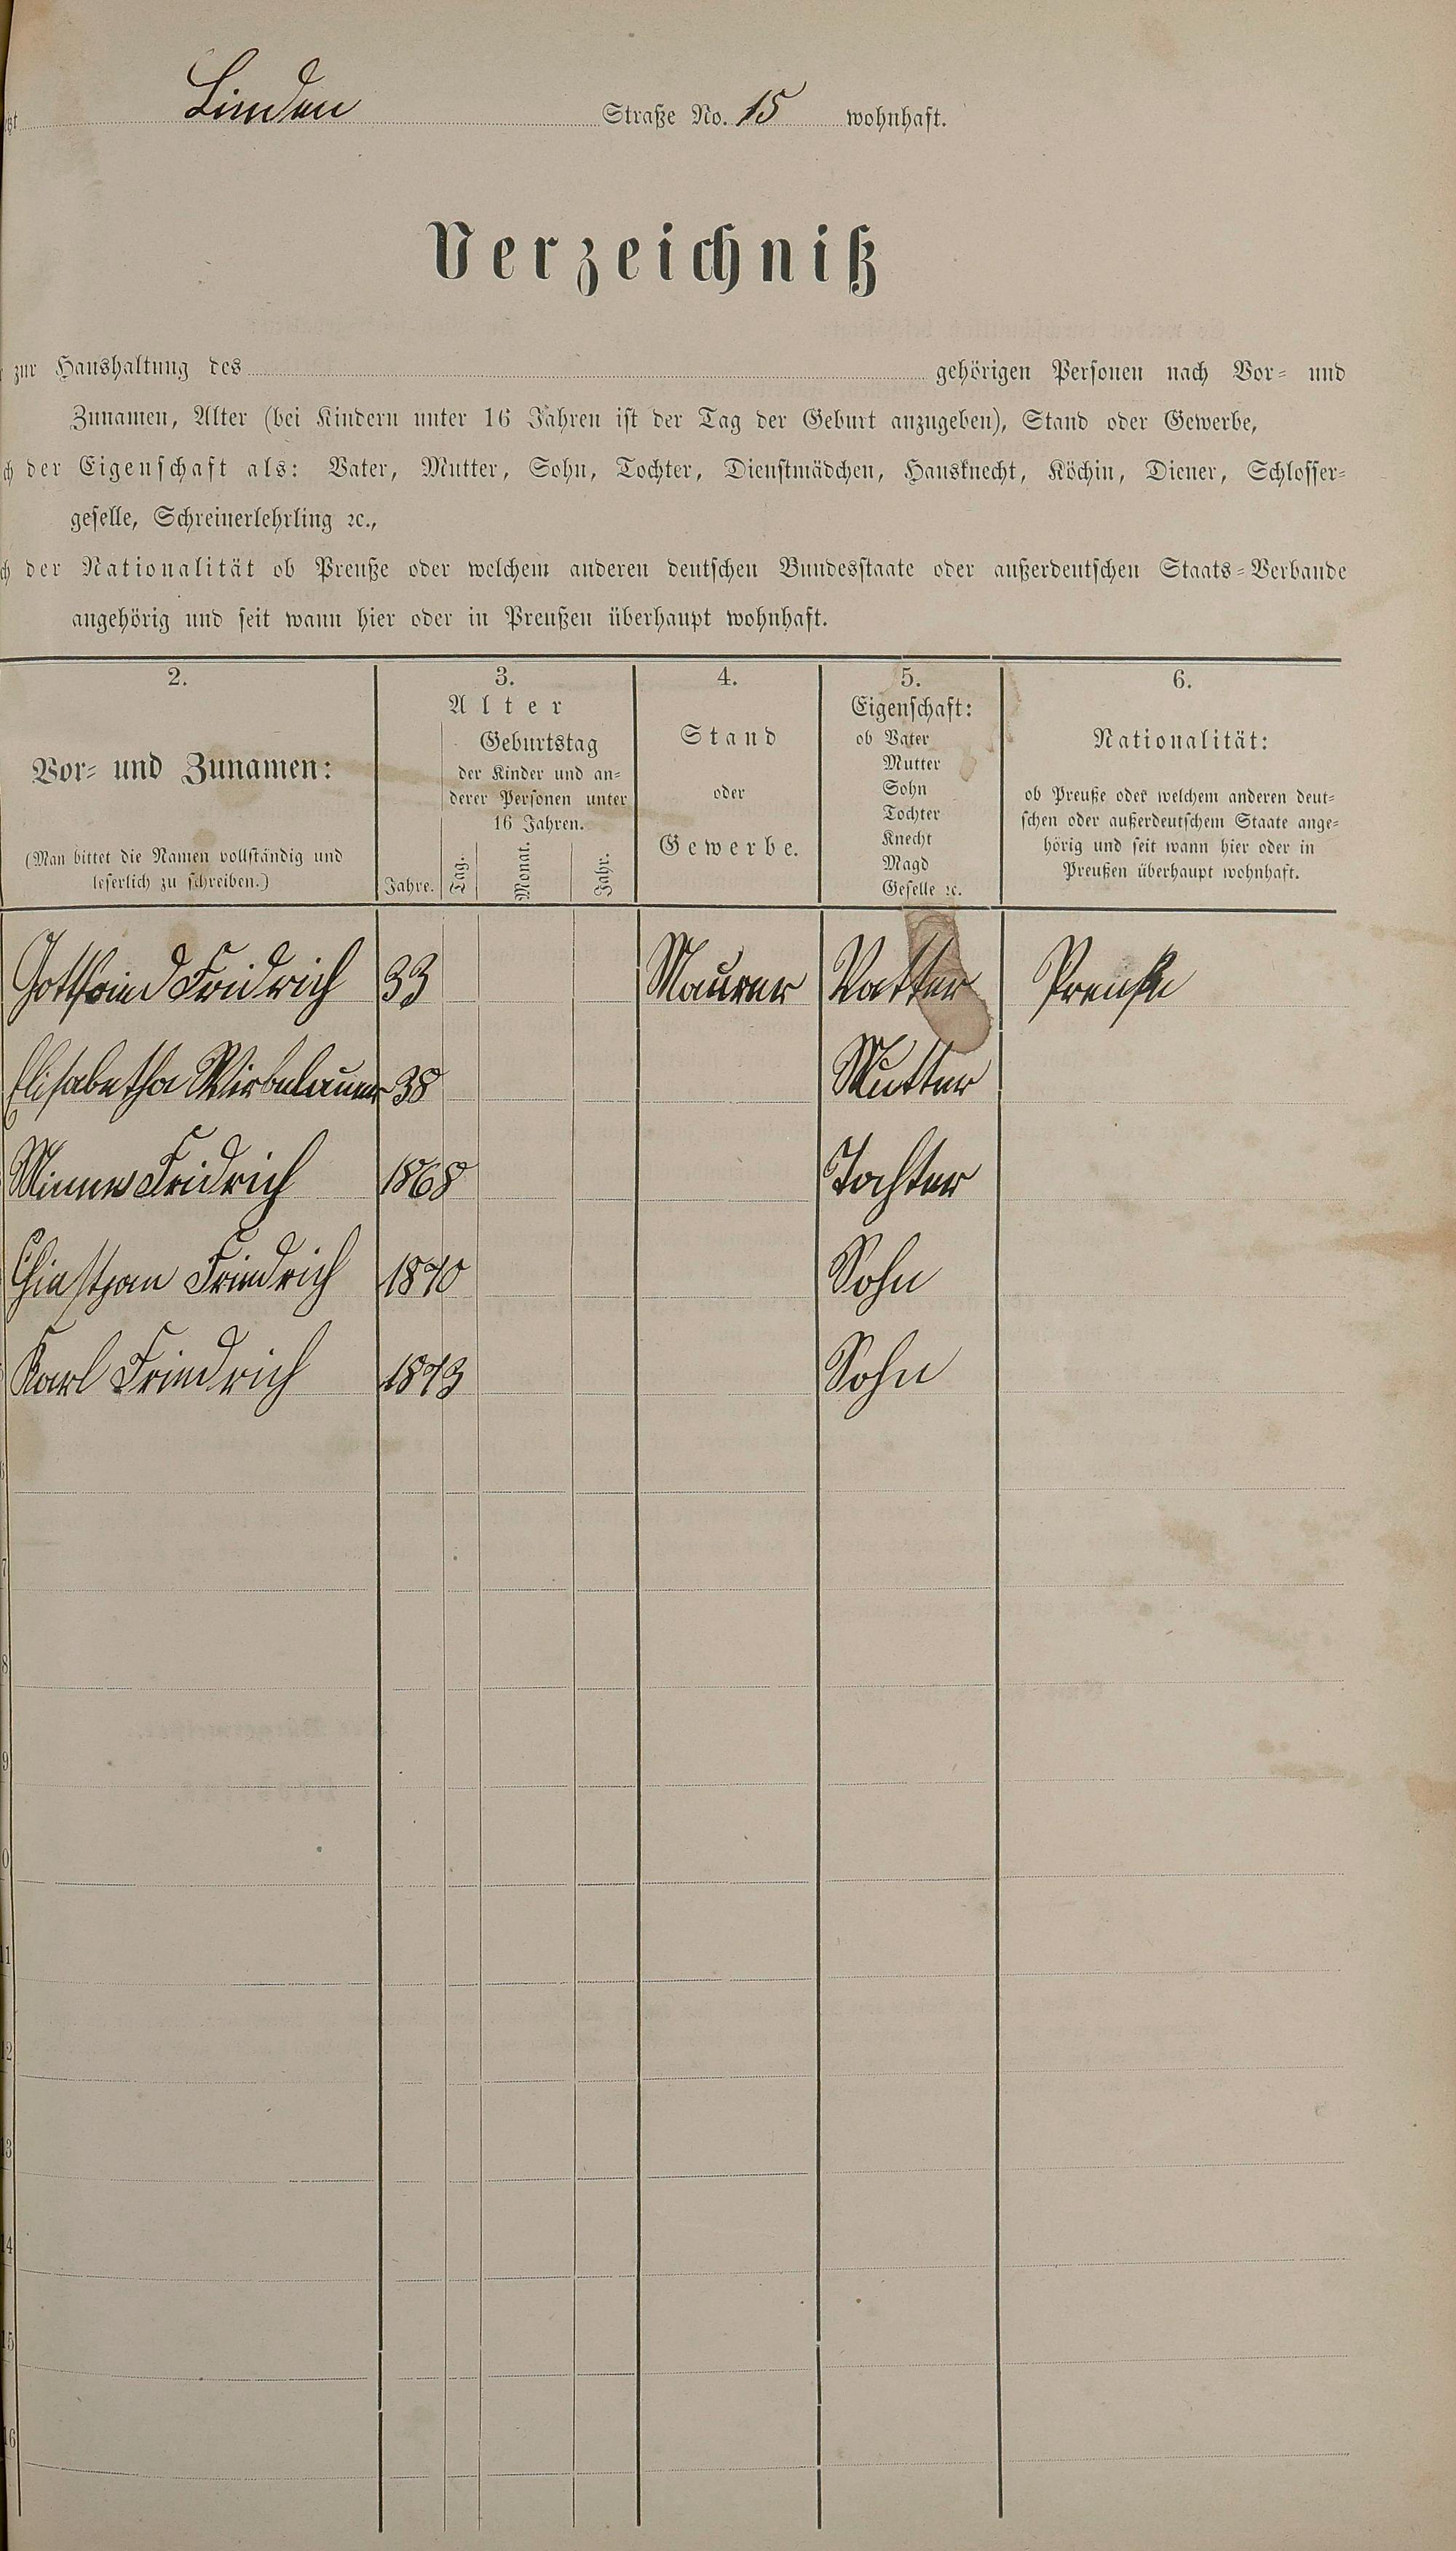 Linden Straße No. 15 wohnhaft.
Verzeichniß
zur Haushaltung des gehörigen Personen nach Vor- und
Zunamen, Alter (bei Kindern unter 16 Jahren ist der Tag der Geburt anzugeben), Stand oder Gewerbe,
der Eigenschaft als: Vater, Mutter, Sohn, Tochter, Dienstmädchen, Hausknecht, Köchin, Diener, Schlosser-
geselle, Schreinerlehrling ꝛc.,
der Nationalität ob Preuße oder welchem anderen deutschen Bundesstaate oder außerdeutschen Staats-Verbande
angehörig und seit wann hier oder in Preußen überhaupt wohnhaft.
2. 3. 4. 5. 6.
Vor- und Zunamen:
(Man bittet die Namen vollständig und
leserlich zu schreiben.)
Alter
Geburtstag
der Kinder und an-
derer Personen unter
16 Jahren.
Jahre. Tag. Monat. Jahr.
Stand
oder
Gewerbe.
Eigenschaft:
ob Vater
Mutter
Sohn
Tochter
Knecht
Magd
Geselle ꝛc.
Nationalität:
ob Preuße oder welchem anderen deut-
schen oder außerdeutschem Staate ange-
hörig und seit wann hier oder in
Preußen überhaupt wohnhaft.
Gottfried Fridrich 33 Maurer Vatter Preuße
Elisabetha Wirbelauer 38 Mutter
Minna Fridrich 1868 Tochter
Friedrich 1870 Sohn
Karl Friedrich 1873 Sohn
7
8
9